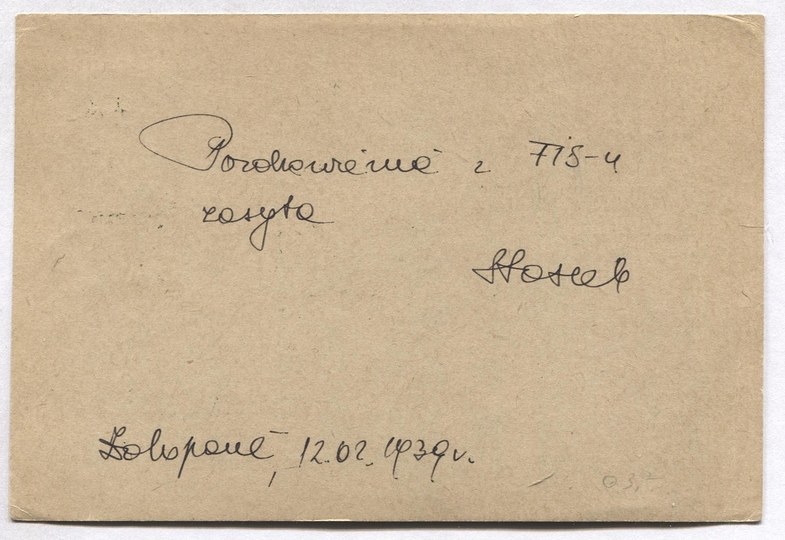 Pozdrowienia z FIS-u
zasyła
Stasiek
Zakopane, 12.02.1939 r.